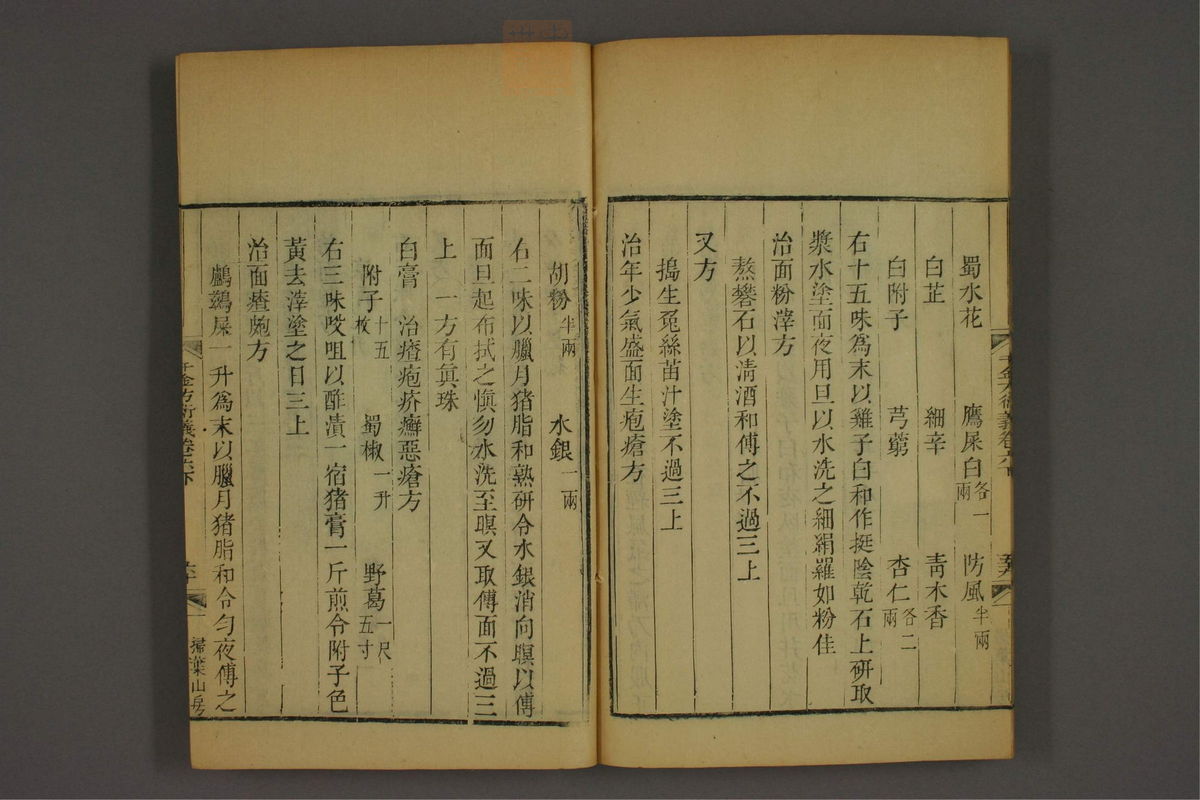 蜀水花 鷹屎白各一兩 防風半兩
白芷 細辛 靑木香
白附子 芎藭 杏仁各二兩
右十五味爲末以雞子白和作挺陰乾石上硏取
漿水塗面夜用旦以水洗之細絹羅如粉佳
治面粉滓方
熬礬石以淸酒和傅之不過三上
又方
搗生兔絲苗汁塗不過三上
治年少氣盛面生皰瘡方
胡粉半兩 水銀一兩
右二味以臘月猪脂和熟硏令水銀消向暝以傅
面旦起布拭之愼勿水洗至暝又取傅面不過三
上 一方有眞珠
白膏 治瘡皰疥癬惡瘡方
附子十五枚 蜀椒一升 野葛一尺五寸
右三味㕮咀以酢漬一宿猪膏一斤煎令附子色
黃去滓塗之日三上
治面皶皰方
鸕鷀屎一升爲末以臘月猪脂和令勻夜傅之
千金方衍義卷六下
掃葉山房